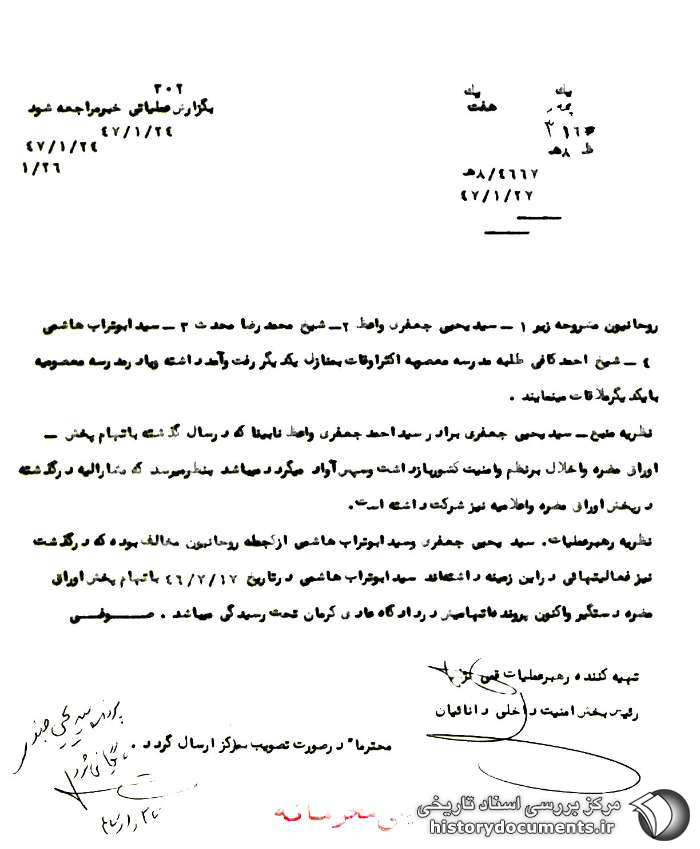 ۳۰۲
بگزارش عملیاتی خبرمراجعه شود
۴۷/۱/۲۴
۴۷/۱/۲۴
۱/۲۶
یك یك
هفت
۳۱۶
۸ هـ
۸/۴۶۶۷هـ
۴۷/۱/۲۷
روحانیون مشروحه زیر ۱ ــ سید یحیی جعفری واعظ ۲ــ شیخ محمد رضا محدث ۳ ــ سید ابوتراب هاشمی
۴ ــ شیخ احمد کافی طلبه مدرسه معصومیه اکثراوقات بمنازل یکدیگر رفت وآمد داشته ویاد رمدرسه معصومیه
بایکدیگرملاقات مینمایند .
نظریه منبع ــ سید یحیی جعفری برادر سید احمد جعفری واعظ نابینا که درسال گذشته باتهام پخش ــ
اوراق مضره واخلال برنظم وامنیت کشوربازداشت وسپس آزاد میگردد میباشد بنظرمیرسد که مشارالیه درگذشته
درپخش اوراق مضره واعلامیه نیز شرکت داشته است.
نظریه رهبرعملیات. سید یحیی جعفری وسید ابوتراب هاشمی ازجمله روحانیون مخالف بوده که درگذشت
نیز فعالیتهائی دراین زمینه داشته‌اند سید ابوتراب هاشمی درتاریخ ۴۶/۷/۱۷ باتهام پخش اوراق
مضره دستگیر واکنون پرونده اتهامیش دردادگاه عادی کرمان تحت رسیدگی میباشد . صـــوفـــی
تهیه کننده رهبرعملیات
رئیس بخش امنیت داخلی دانائیان
محترما" درصورت تصویب بمرکز ارسال گردد .
پرونده سید یحیی جعفری
بایگانی شود
محرمانه
مرکز بررسی اسناد تاریخی
historydocuments.ir